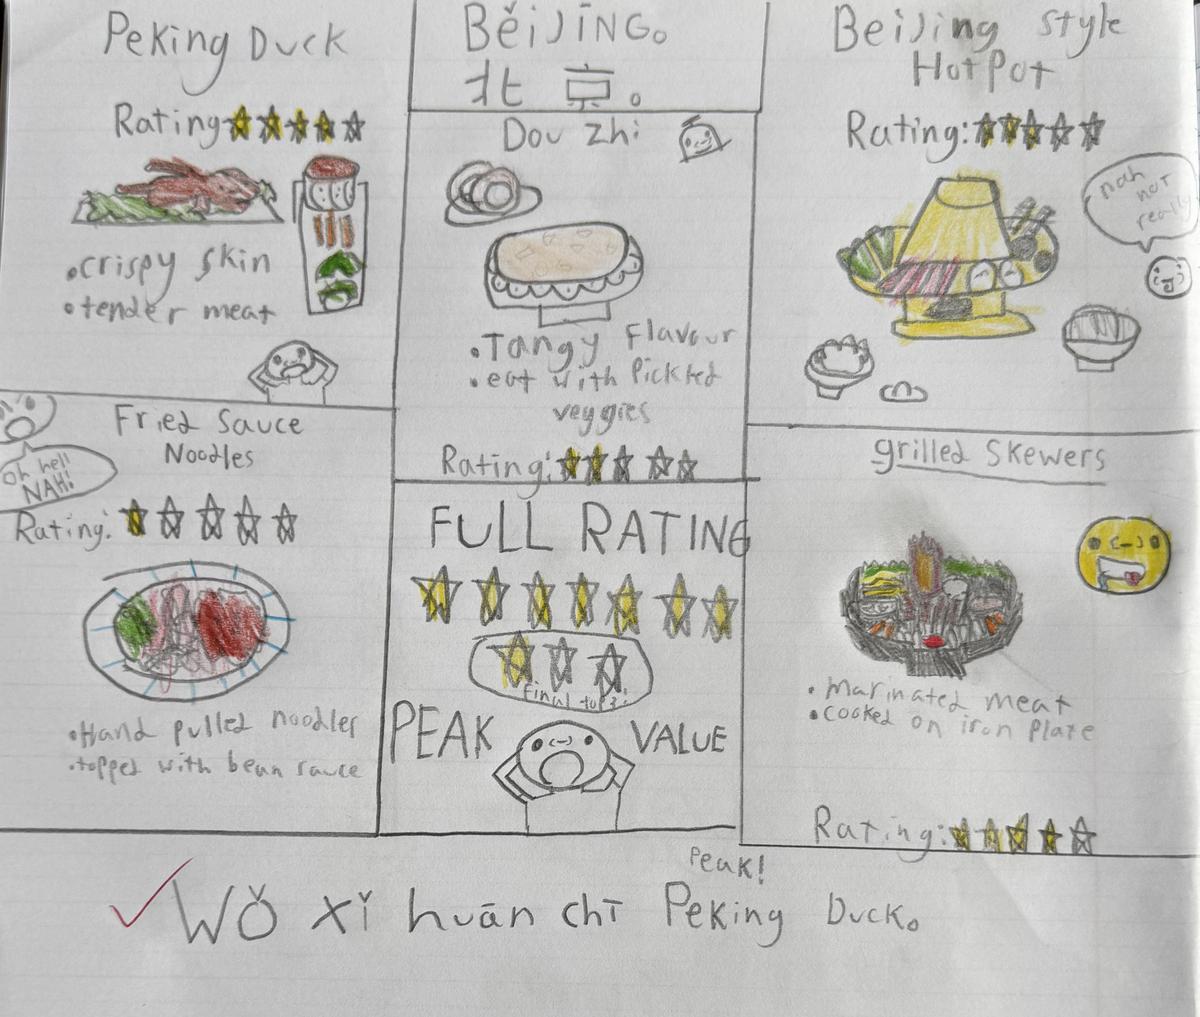 Peking Duck
Rating
• crispy skin
• tender meat
Běi JīNG。
北 京。
Dou zhi
• Tangy Flavour
• eat with Pickted
veggies
Rating:
Beijing Style
HotPot
Rating:
nah
not
really
Fried Sauce
Noodles
Oh hell
NAH!!
Rating:
• Hand pulled noodles
• topped with bean sauce
FULL RATING
Final top 3!
PEAK VALUE
grilled Skewers
• marinated meat
• cooked on iron Plate
Rating:
Peak!
Wǒ xǐ huān chī Peking Duck。